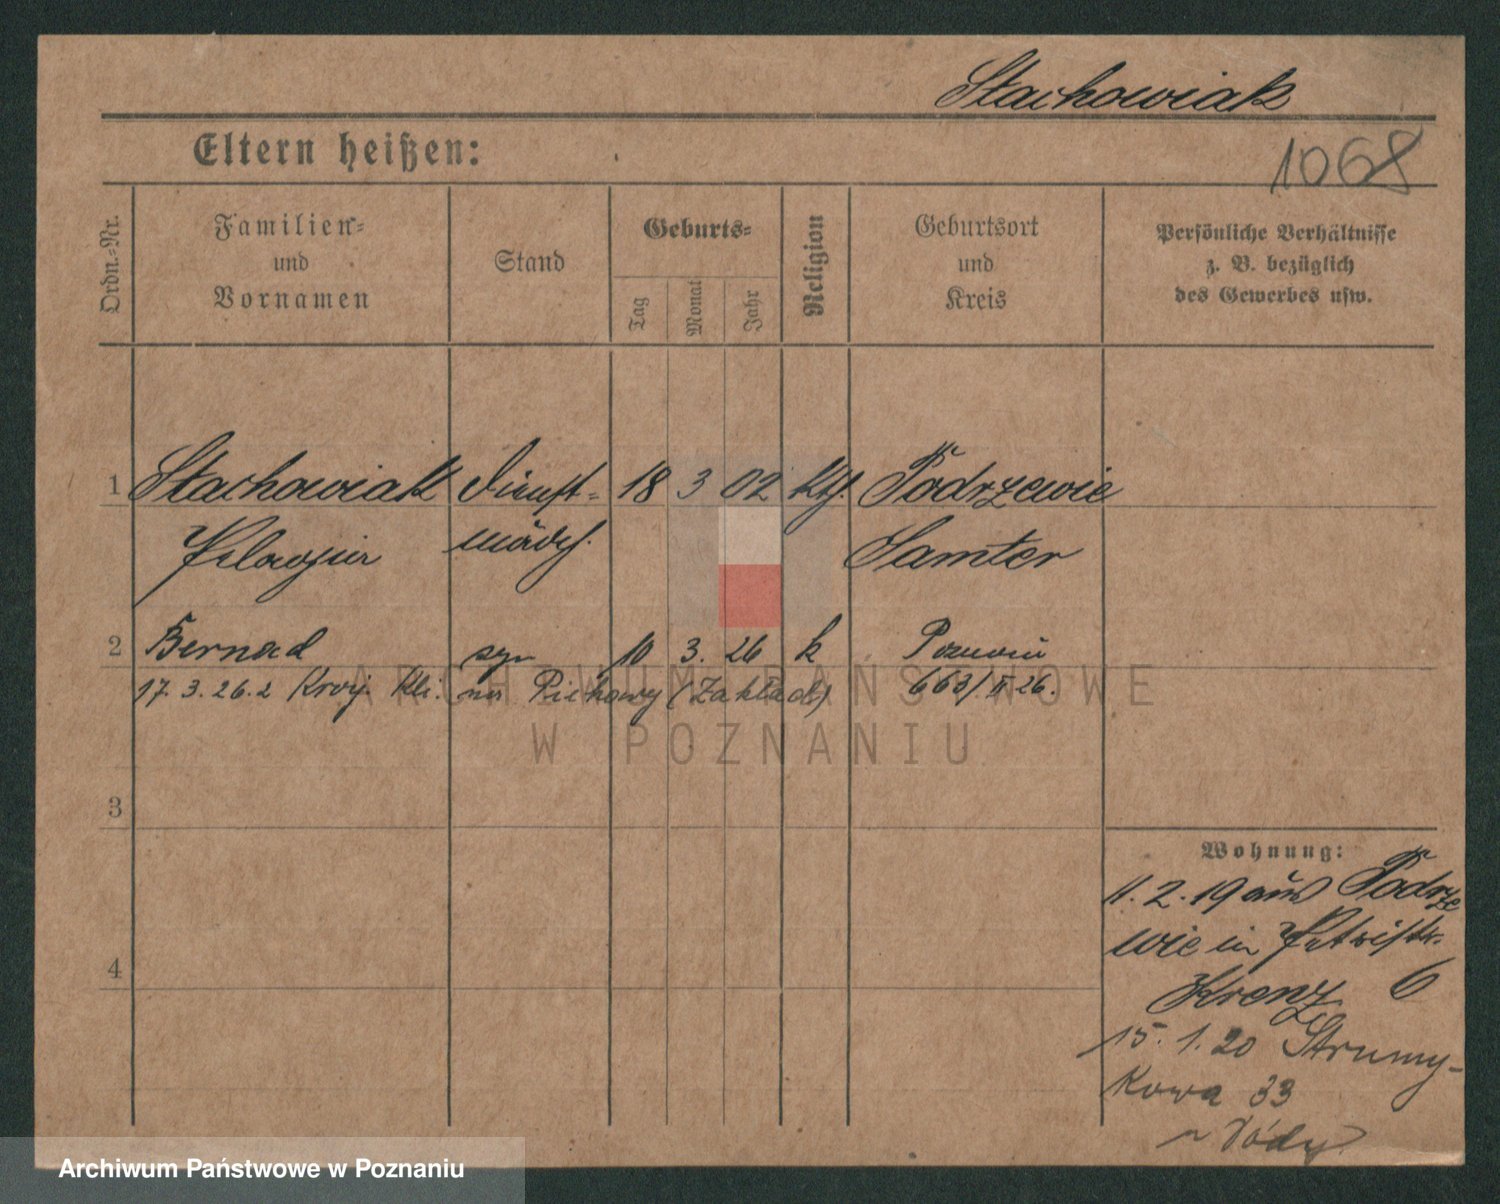 Stachowiak
1068
Eltern heißen:
Ordn.-Nr.
Familien- und Vornamen
Stand
Geburts-
Tag
Monat
Jahr
Religion
Geburtsort und Kreis
Persönliche Verhältnisse z. B. bezüglich des Gewerbes usw.
1 Stachowiak Dienst- 18 3 02 kth. Podrzewie
Pelagia mädch. Samter
2 Bernad syn 10 3. 26 k Poznań
17. 3. 26. z Kli. na (Zakład) 663/II 26.
3
4
Wohnung:
11. 2. 19 aus Podrze
wie in
Kranz 6
15. 1. 20 Strumy-
kowa 33
ARCHIWUM PAŃSTWOWE
W POZNANIU
Archiwum Państwowe w Poznaniu